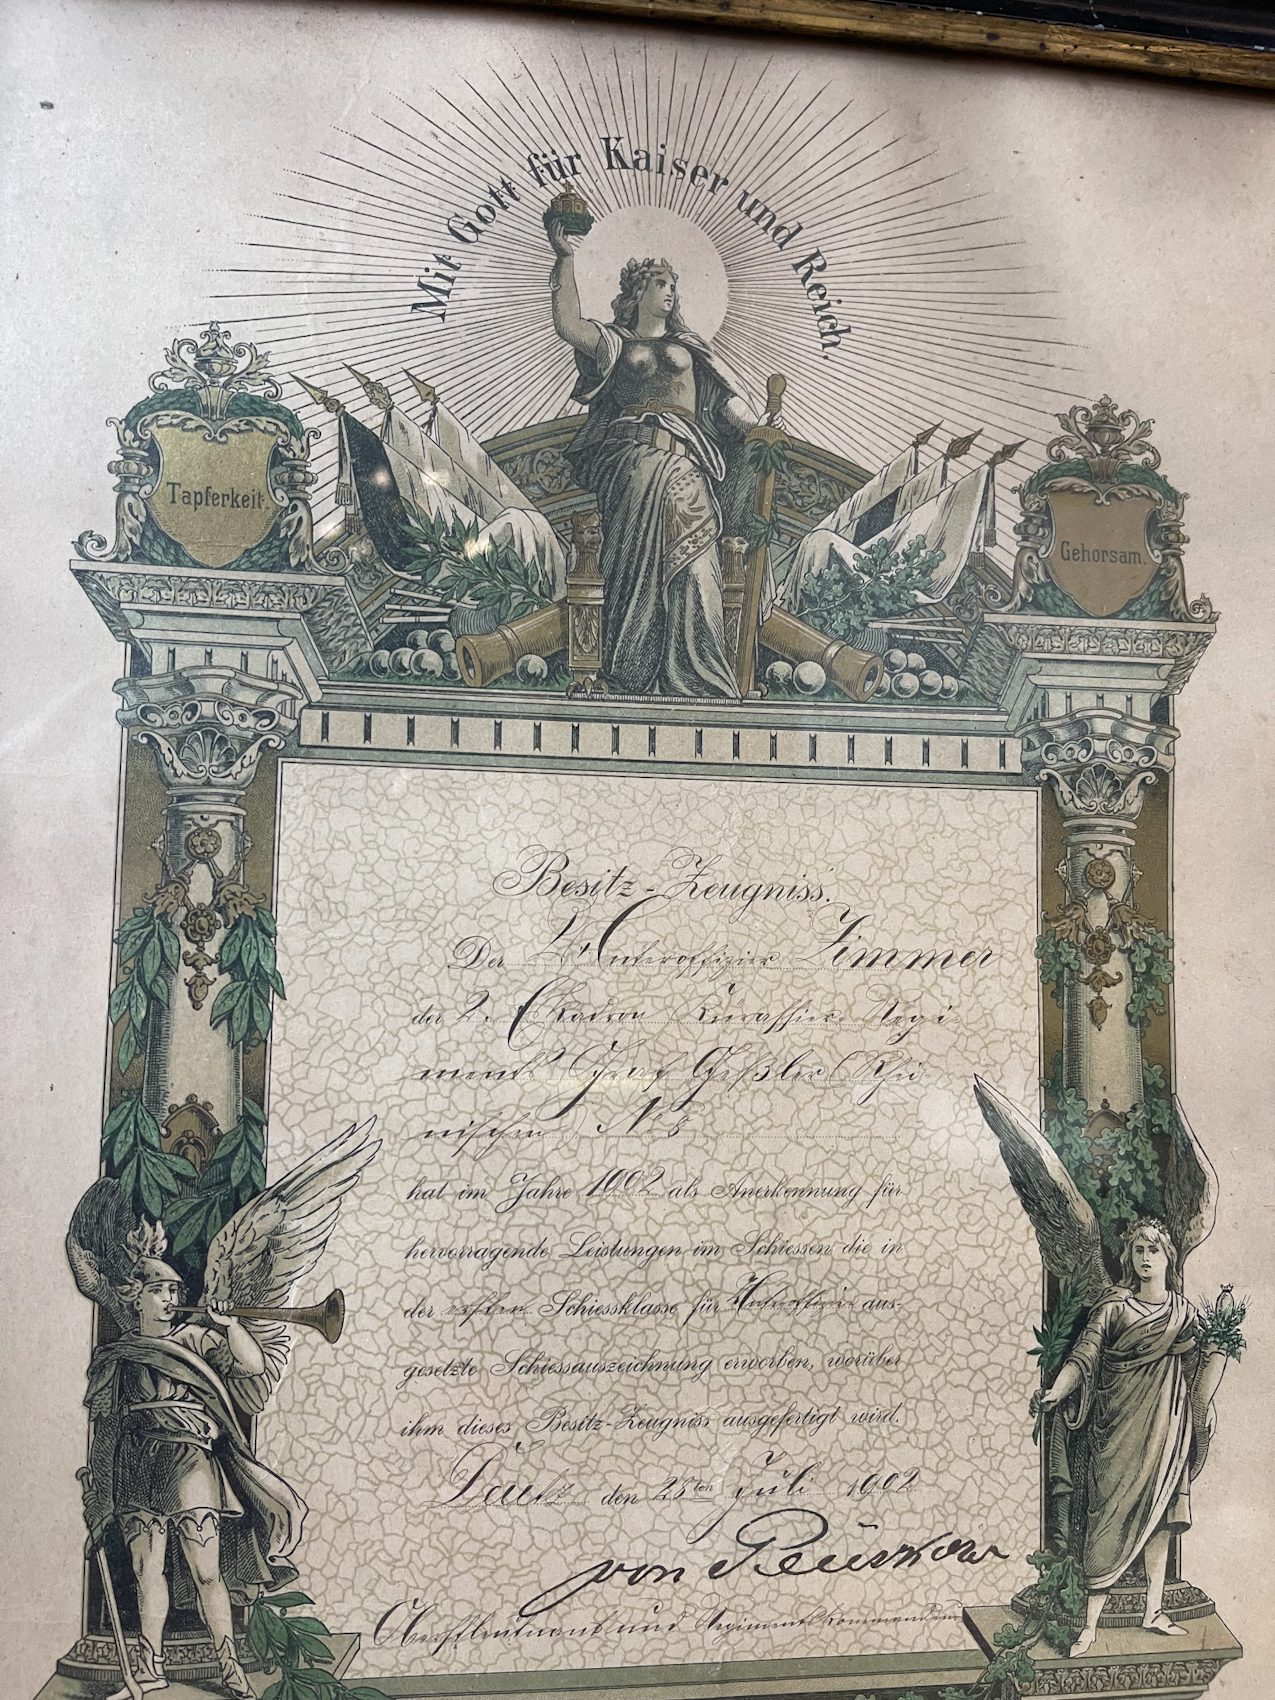 Mit Gott für Kaiser und Reich.
Tapferkeit.
Gehorsam.
Besitz-Zeugniss.
Der Unteroffizier Zimmer
der 2. Eskadron Kürassier Regi
ments Graf Geßler (Rhei
nischen) No 8
hat im Jahre 1902 als Anerkennung für
hervorragende Leistungen im Schiessen die in
der ersten Schiessklasse für Unteroffizier aus-
gesetzte Schiessauszeichnung erworben, worüber
ihm dieses Besitz-Zeugniss ausgefertigt wird.
Deutz den 28ten Juli 1902
von
Oberstleutnant und Regimentskommandeur